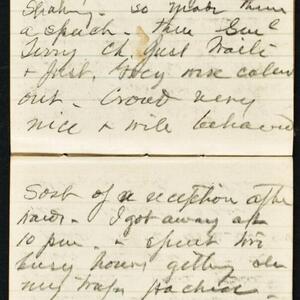 so made them
a speech - then Gen
Terry Ch Just Waite
& Just, they were called
out - Crowd very
nice & well behaved
Sort of a reception after
wards - I got away at
10 pm. & spent two
busy hours getting
my traps packed